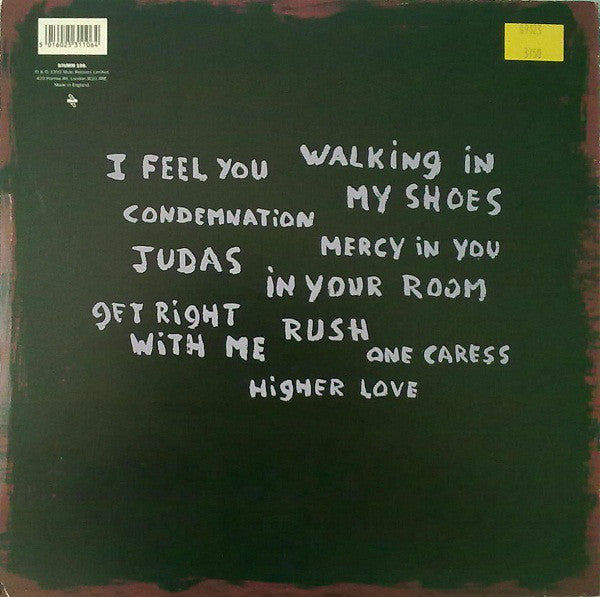 5 016025 311064
STUMM 106.
℗ & © 1993 Mute Records Limited,
429 Harrow Rd, London W10 4RE.
Made in England.
69323
3750
I FEEL YOU
WALKiNg iN
MY SHOES
CONDEMNATiON
MERCY iN YOU
JUDAS
iN YOUR ROOM
gET RigHT
WiTH ME
RUSH
ONE CARESS
HigHER LOVE